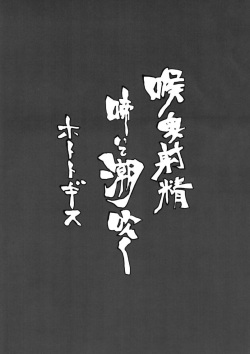 喉奥射精
啼いて潮吹く
ホトトギス